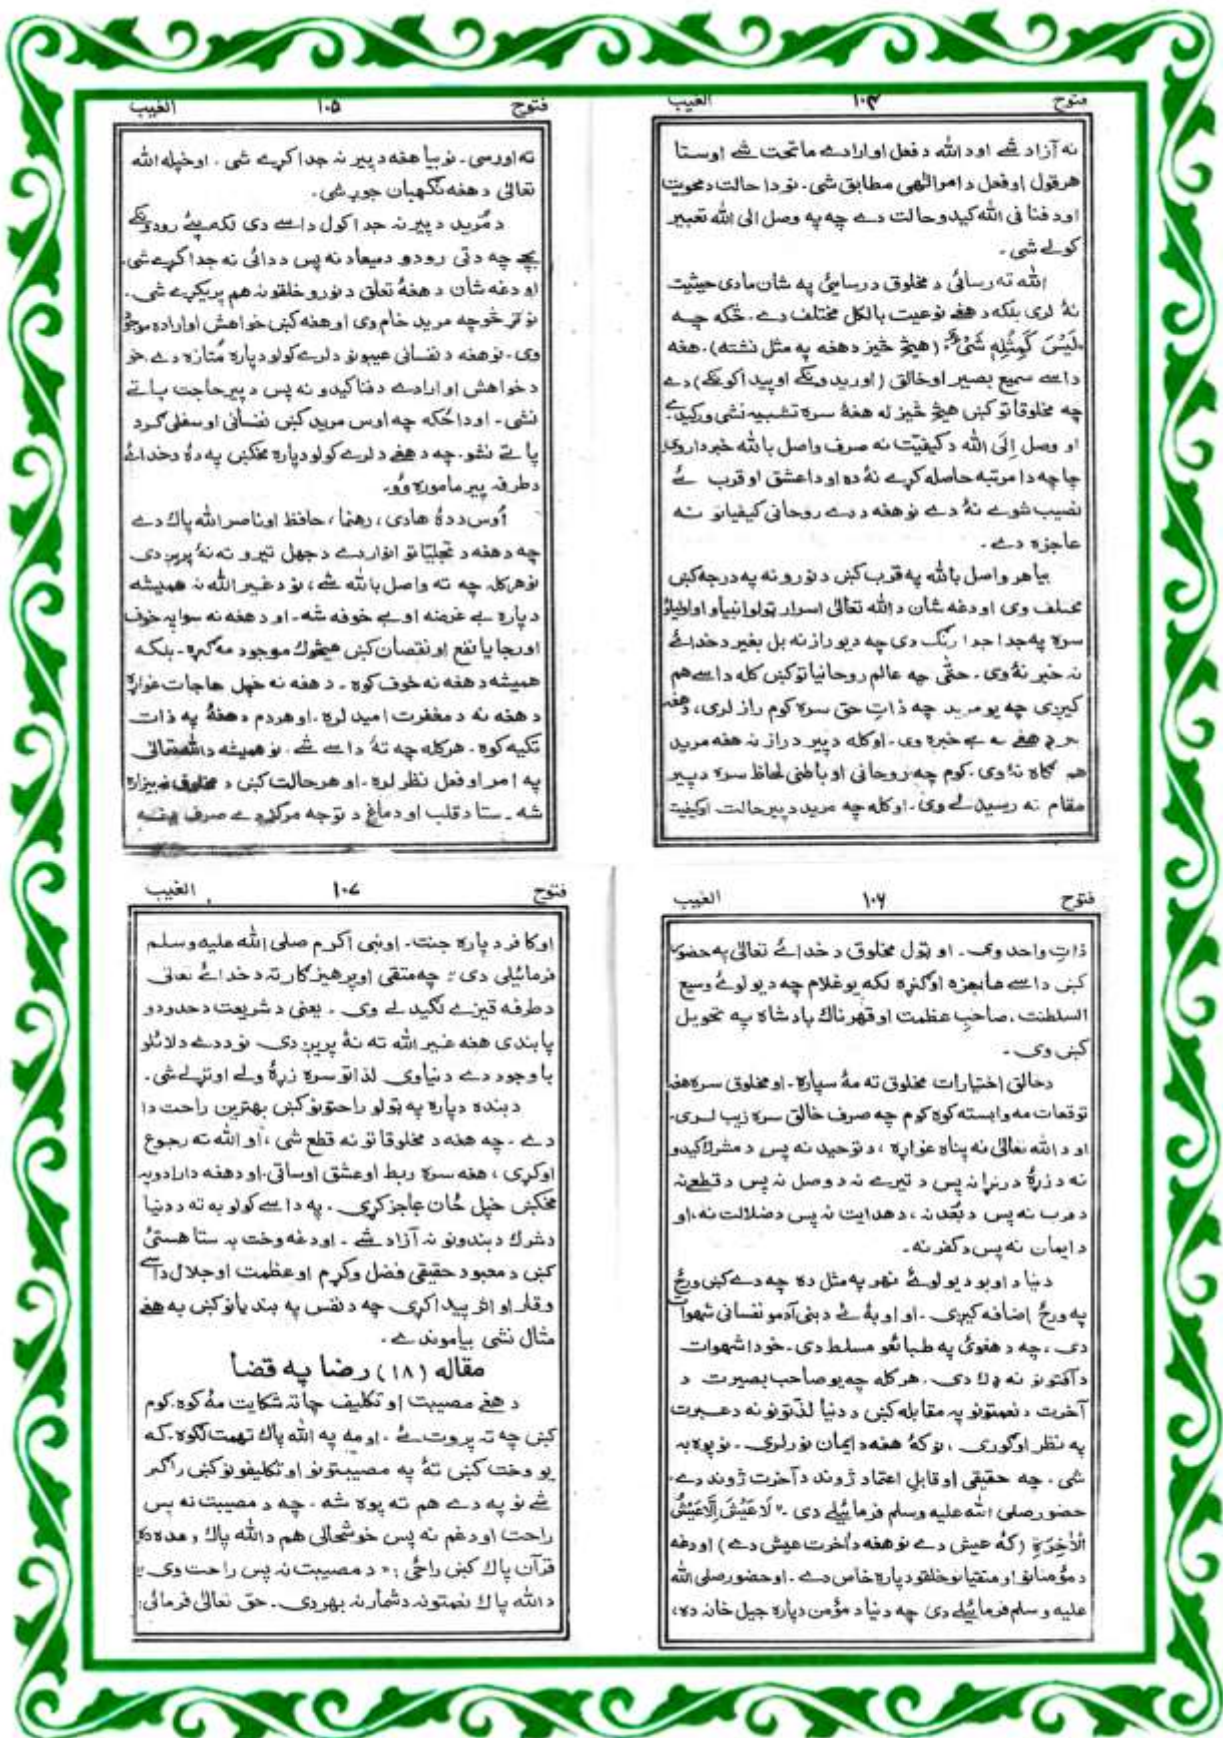 فتوح ١٠٤ الغيب
نه آزاد شے اود الله د فعل او ارادے ماتحت شے اوستا
هر قول او فعل د امرالٰهی مطابق شی۔ نو دا حالت د محویت
اود فنا فی الله کیدو حالت دے چه په وصل الی الله تعبیر
کولے شی۔
الله ته رسائی د مخلوق د رسایئ په شان مادی حیثیت
نهٔ لری بلکه د هغے نوعیت بالکل مختلف دے۔ ځکه چه
لَیْسَ کَمِثْلِهٖ شَیْءٌ (هیڅ څیز د هغه په مثل نشته)۔ هغه
داسے سمیع بصیر او خالق (اوریدونکے او پیدا کونکے) دے
چه مخلوقاتو کښ هیڅ څیز له هغهٔ سره تشبیه نشی ورکیدے
او وصل اِلَی الله د کیفیّت نه صرف واصل بالله خبردار وی
چا چه دا مرتبه حاصله کړے نهٔ ده او دا عشق او قرب ئے
نصیب شوے نهٔ دے نو هغه د دے روحانی کیفیاتو نه
عاجزه دے۔
بیا هر واصل بالله په قرب کښ د نورو نه په درجه کښ
مختلف وی او دغه شان د الله تعالیٰ اسرار ټولو انبیاو او اولیاؤ
سره په جدا جدا رنګ دی چه د یو راز نه بل بغیر د خدائے
نه خبر نهٔ وی۔ حتّٰی چه عالم روحانیاتو کښ کله داسے هم
کیږی چه یو مرید چه ذاتِ حق سره کوم راز لری، د هغه
هغے نه بے خبره وی۔ او کله د پیر د راز نه هغه مرید
هم ګاه نهٔ وی۔ کوم چه روحانی او باطنی لحاظ سره د پیر
مقام ته رسیدلے وی۔ او کله چه مرید د پیر حالت او کیفیت
فتوح ١٠٥ الغيب
ته اورسی۔ نو بیا هغه د پیر نه جدا کړے شی۔ او خپله الله
تعالیٰ د هغه نګهبان جوړ شی۔
د مُرید د پیر نه جدا کول داسے دی لکه پئے رودونکے
بچے چه د تی رودو د میعاد نه پس د دائی نه جدا کړے شی۔
او دغه شان د هغهٔ تعلق د نورو خلقو نه هم پریکړے شی۔
نو تر څو چه مرید خام وی او هغه کښ خواهش او اراده موجود
وی۔ نو هغه د نفسانی عیبونو د لرے کولو دپاره مُتازه دے۔ خو
د خواهش او ارادے د فنا کیدو نه پس د پیر حاجت پاتے
نشی۔ او دا ځکه چه اوس مرید کښ نفسانی او سفلی ګرد
پاتے نشو۔ چه د هغے د لرے کولو دپاره مخکښ په دهٔ د خدائے
د طرفه پیر ماموره وؤ۔
اُوس د دهٔ هادی، رهنما، حافظ او ناصر الله پاك دے
چه د هغه د تجلیّاتو انوار دے د جهل تیرو ته نهٔ پریږدی
نو هر کله چه ته واصل بالله شے، نو د غیر الله نه همیشه
دپاره بے غرضه او بے خوفه شه۔ او د هغه نه سوا په خوف
او رجا یا نفع او نقصان کښ هیڅوك موجود مه ګڼه۔ بلکه
همیشه د هغه نه خوف کوه۔ د هغه نه خپل حاجات غواړه
د هغه نه د مغفرت امید لره۔ او هر دم د هغهٔ په ذات
تکیه کوه۔ هر کله چه تهٔ داسے شے۔ نو همیشه د الله تعالیٰ
په امر او فعل نظر لره۔ او هر حالت کښ د مخلوق نه بیزاره
شه۔ ستا د قلب او دماغ د توجه مرکز دے صرف
فتوح ١٠٦ الغيب
ذاتِ واحد وی۔ او ټول مخلوق د خدائے تعالیٰ په حضور
کښ داسے عاجزه اوګڼه لکه یو غلام چه د یو لوئے وسیع
السلطنت، صاحبِ عظمت او قهرناك بادشاه په تحویل
کښ وی۔
د خالق اختیارات مخلوق ته مهٔ سپاره۔ او مخلوق سره هغه
توقعات مه وابسته کوه کوم چه صرف خالق سره زیب لری۔
او د الله تعالیٰ نه پناه غواړه، د توحید نه پس د مشرك کیدو
نه د زړهٔ د رنړا نه پس د تیرے نه د وصل نه پس د قطع نه
د قرب نه پس د بُعد نه، د هدایت نه پس د ضلالت نه، او
د ایمان نه پس د کفر نه۔
دنیا د اوبو د یو لوئے نهر په مثل ده چه دے کښ ورځ
په ورځ اضافه کیږی۔ او اوبهٔ ئے د بنی آدمو نفسانی شهوات
دی، چه د هغوئ په طبائعو مسلط دی۔ خو دا شهوات
د آفتونو نه ډك دی۔ هر کله چه یو صاحب بصیرت د
آخرت د نعمتونو په مقابله کښ د دنیا لذّتونو ته د عبرت
په نظر اوګوری، نو کهٔ هغه د ایمان نور لری۔ نو پوه به
شی، چه حقیقی او قابلِ اعتماد ژوند د آخرت ژوند دے۔
حضور صلی الله علیه وسلم فرمائیلے دی ۔" لَا عَیْشَ اِلَّا عَیْشُ
الْاٰخِرَةِ (کهٔ عیش دے نو هغه د آخرت عیش دے) او دغه
د مؤمنانو او متقیانو خلقو دپاره خاص دے۔ او حضور صلی الله
علیه و سلم فرمائیلے دی چه دنیا د مؤمن دپاره جیل خانه ده،
فتوح ١٠٧ الغيب
او کافر دپاره جنت۔ او نبی اکرم صلی الله علیه وسلم
فرمائیلی دی: چه متقی او پرهیزګار ته د خدائے تعالی
د طرفه قیزے لګیدلے وی۔ یعنی د شریعت د حدودو
پابندی هغه غیر الله ته نهٔ پریږدی نو د دے دلائلو
باوجود دے دنیاوی لذاتو سره زړهٔ ولے اوتړلے شی۔
د بنده دپاره په ټولو راحتونو کښ بهترین راحت دا
دے۔ چه هغه د مخلوقاتو نه قطع شی، او الله ته رجوع
اوکړی، هغه سره ربط او عشق اوساتی۔ او د هغه د ارادو په
مخکښ خپل ځان عاجز کړی۔ په داسے کولو به ته د دنیا
د شرك د بندونو نه آزاد شے۔ او دغه وخت به ستا هستئ
کښ د معبود حقیقی فضل وکرم او عظمت او جلال داسے
وقار او اثر پیدا کړی چه د نفس په بندیانو کښ به هغے
مثال نشی بیا موندے۔
مقاله (١٨) رضا په قضا
د هغے مصیبت او تکلیف چا ته شکایت مهٔ کوه۔ کوم
کښ چه ته پروت ئے۔ او مه په الله پاك تهمت لګوه۔ که
یو وخت کښ تهٔ په مصیبتونو او تکلیفونو کښ راګیر
شے نو په دے هم ته پوه شه۔ چه د مصیبت نه پس
راحت او د غم نه پس خوشحالی هم د الله پاك وعده ده
قرآن پاك کښ راځی: "د مصیبت نه پس راحت وی"
د الله پاك نعمتونه د شمار نه بهر دی۔ حق تعالیٰ فرمائی: